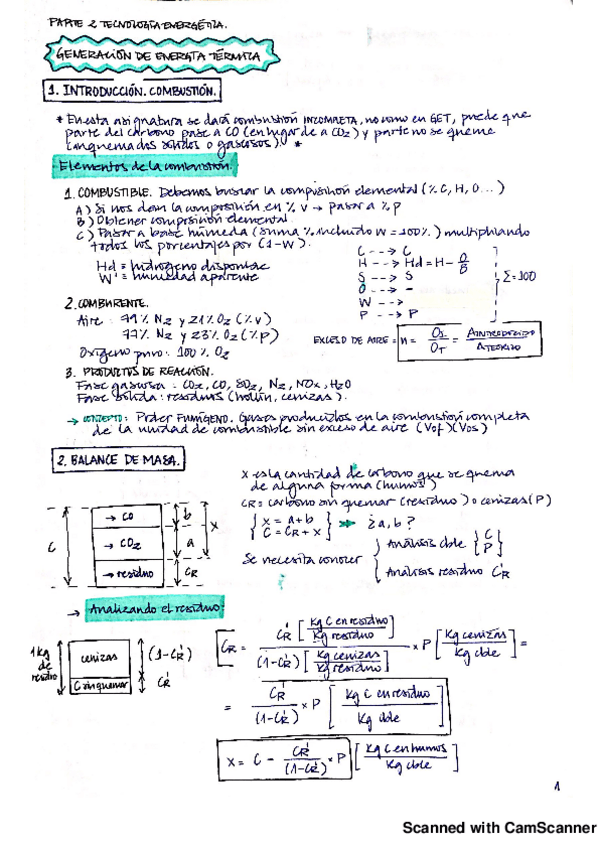 PARTE 2 TECNOLOGÍA ENERGÉTICA.
GENERACIÓN DE ENERGÍA TÉRMICA
1. INTRODUCCIÓN. COMBUSTIÓN.
* En esta asignatura se dará combustión INCOMPLETA, no como en GET, puede que
parte del carbono pase a CO (en lugar de a CO2) y parte no se queme
(inquemados sólidos o gaseosos). *
Elementos de la combustión
1. COMBUSTIBLE. Debemos buscar la composición elemental (% C, H, O...)
A) Si nos dan la composición en % v → pasar a % p
B) Obtener composición elemental.
C) Pasar a base húmeda (suma % incluido W = 100%) multiplicando
todos los porcentajes por (1-W).
Hd = hidrógeno disponible
W' = humedad aparente
C --→ C
H --→ Hd = H - O/8
S --→ S
O --→ -
W --→
P --→ P
Σ=100
2. COMBURENTE.
Aire: 79% N2 y 21% O2 (% v)
77% N2 y 23% O2 (% p)
Oxígeno puro: 100% O2
EXCESO DE AIRE = n = =
3. PRODUCTOS DE REACCIÓN.
Fase gaseosa: CO2, CO, SO2, N2, NOx, H2O
Fase sólida: residuos (hollín, cenizas).
→ CONCEPTO: Poder FUMÍGENO. Gases producidos en la combustión completa
de la unidad de combustible sin exceso de aire (Vof)(Vos)
2. BALANCE DE MASA.
X es la cantidad de carbono que se quema
de alguna forma (humos)
CR = carbono sin quemar (residuo) o cenizas (P)
{ X = a+b
C = CR + X } ¿a, b?
Se necesita conocer
Análisis cble { C P }
Análisis residuo C'R
C
→ CO
→ CO2
→ residuo
b
a
X
CR
→ Analizando el residuo:
1 kg de residuo
cenizas
C inquemar
(1-C'R)
C'R
CR = C'R [Kg C en residuo / Kg residuo] / (1-C'R) [Kg cenizas / Kg residuo] × P [Kg cenizas / Kg cble] =
= C'R / (1-C'R) × P [Kg C en residuo / Kg cble]
X = C - C'R / (1-C'R) × P [Kg C en humos / Kg cble]
1
Scanned with CamScanner